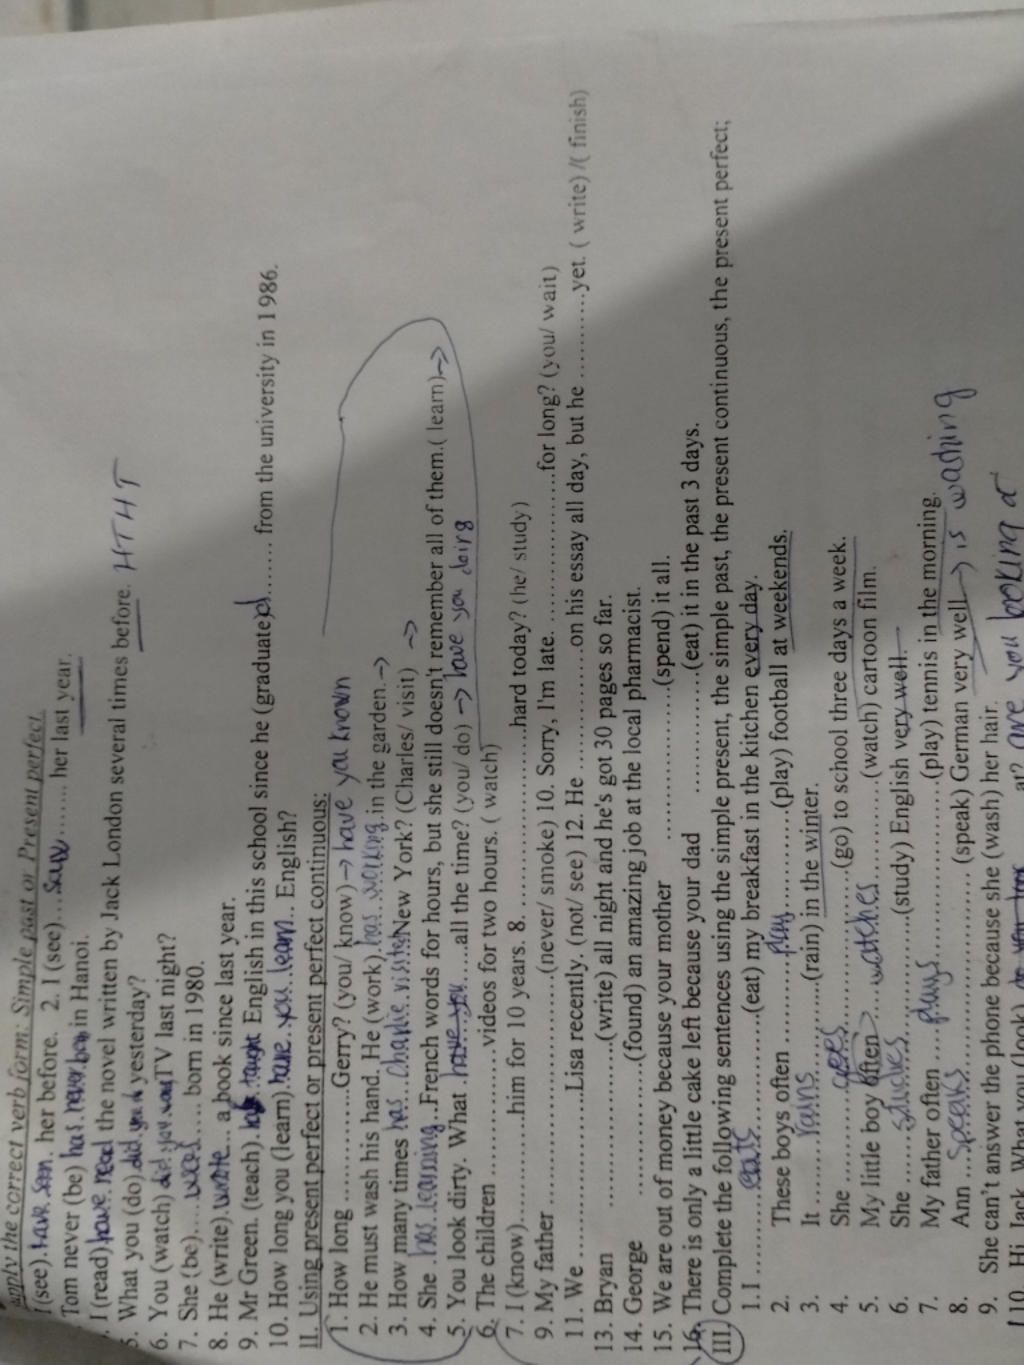 apply the correct verb form: Simple past or Present perfect.
I (see).have seen. her before. 2. I (see)...saw...... her last year.
Tom never (be) has never been in Hanoi.
I (read) have read the novel written by Jack London several times before. HTHT
5. What you (do) did you yesterday?
6. You (watch) did you TV last night?
7. She (be).... .... born in 1980.
8. He (write).wrote... a book since last year.
9. Mr Green. (teach). taught English in this school since he (graduate)d....... from the university in 1986.
10. How long you (learn).have..you..learn.. English?
II. Using present perfect or present perfect continuous:
1. How long ...............Gerry? (you/ know) → have you known
2. He must wash his hand. He (work).has..working.in the garden.→
3. How many times has..Charlie.visited New York? (Charles/ visit) →
4. She .has..learning..French words for hours, but she still doesn't remember all of them.( learn).→
5. You look dirty. What .have..you.....all the time? (you/ do) → have you doing
6. The children ...............videos for two hours. ( watch)
7. I (know)...............him for 10 years. 8. .....................hard today? (he/ study)
9. My father .....................(never/ smoke) 10. Sorry, I'm late. .....................for long? (you/ wait)
11. We .....................Lisa recently. (not/ see) 12. He ...............on his essay all day, but he ..........yet. ( write) /( finish)
13. Bryan ...............(write) all night and he's got 30 pages so far.
14. George ...............(found) an amazing job at the local pharmacist.
15. We are out of money because your mother ...............(spend) it all.
16. There is only a little cake left because your dad ...............(eat) it in the past 3 days.
III. Complete the following sentences using the simple present, the simple past, the present continuous, the present perfect;
1. I ..........eats...............(eat) my breakfast in the kitchen every day.
2. These boys often ..........play..........(play) football at weekends.
3. It ......rains..........(rain) in the winter.
4. She ..........goes...............(go) to school three days a week.
5. My little boy often ......watches..........(watch) cartoon film.
6. She ......studies...............(study) English very well.
7. My father often ......plays...............(play) tennis in the morning.
8. Ann ...speaks............... (speak) German very well → is washing
9. She can't answer the phone because she (wash) her hair.
10. Hi Jack. What you (look) at? are you looking at